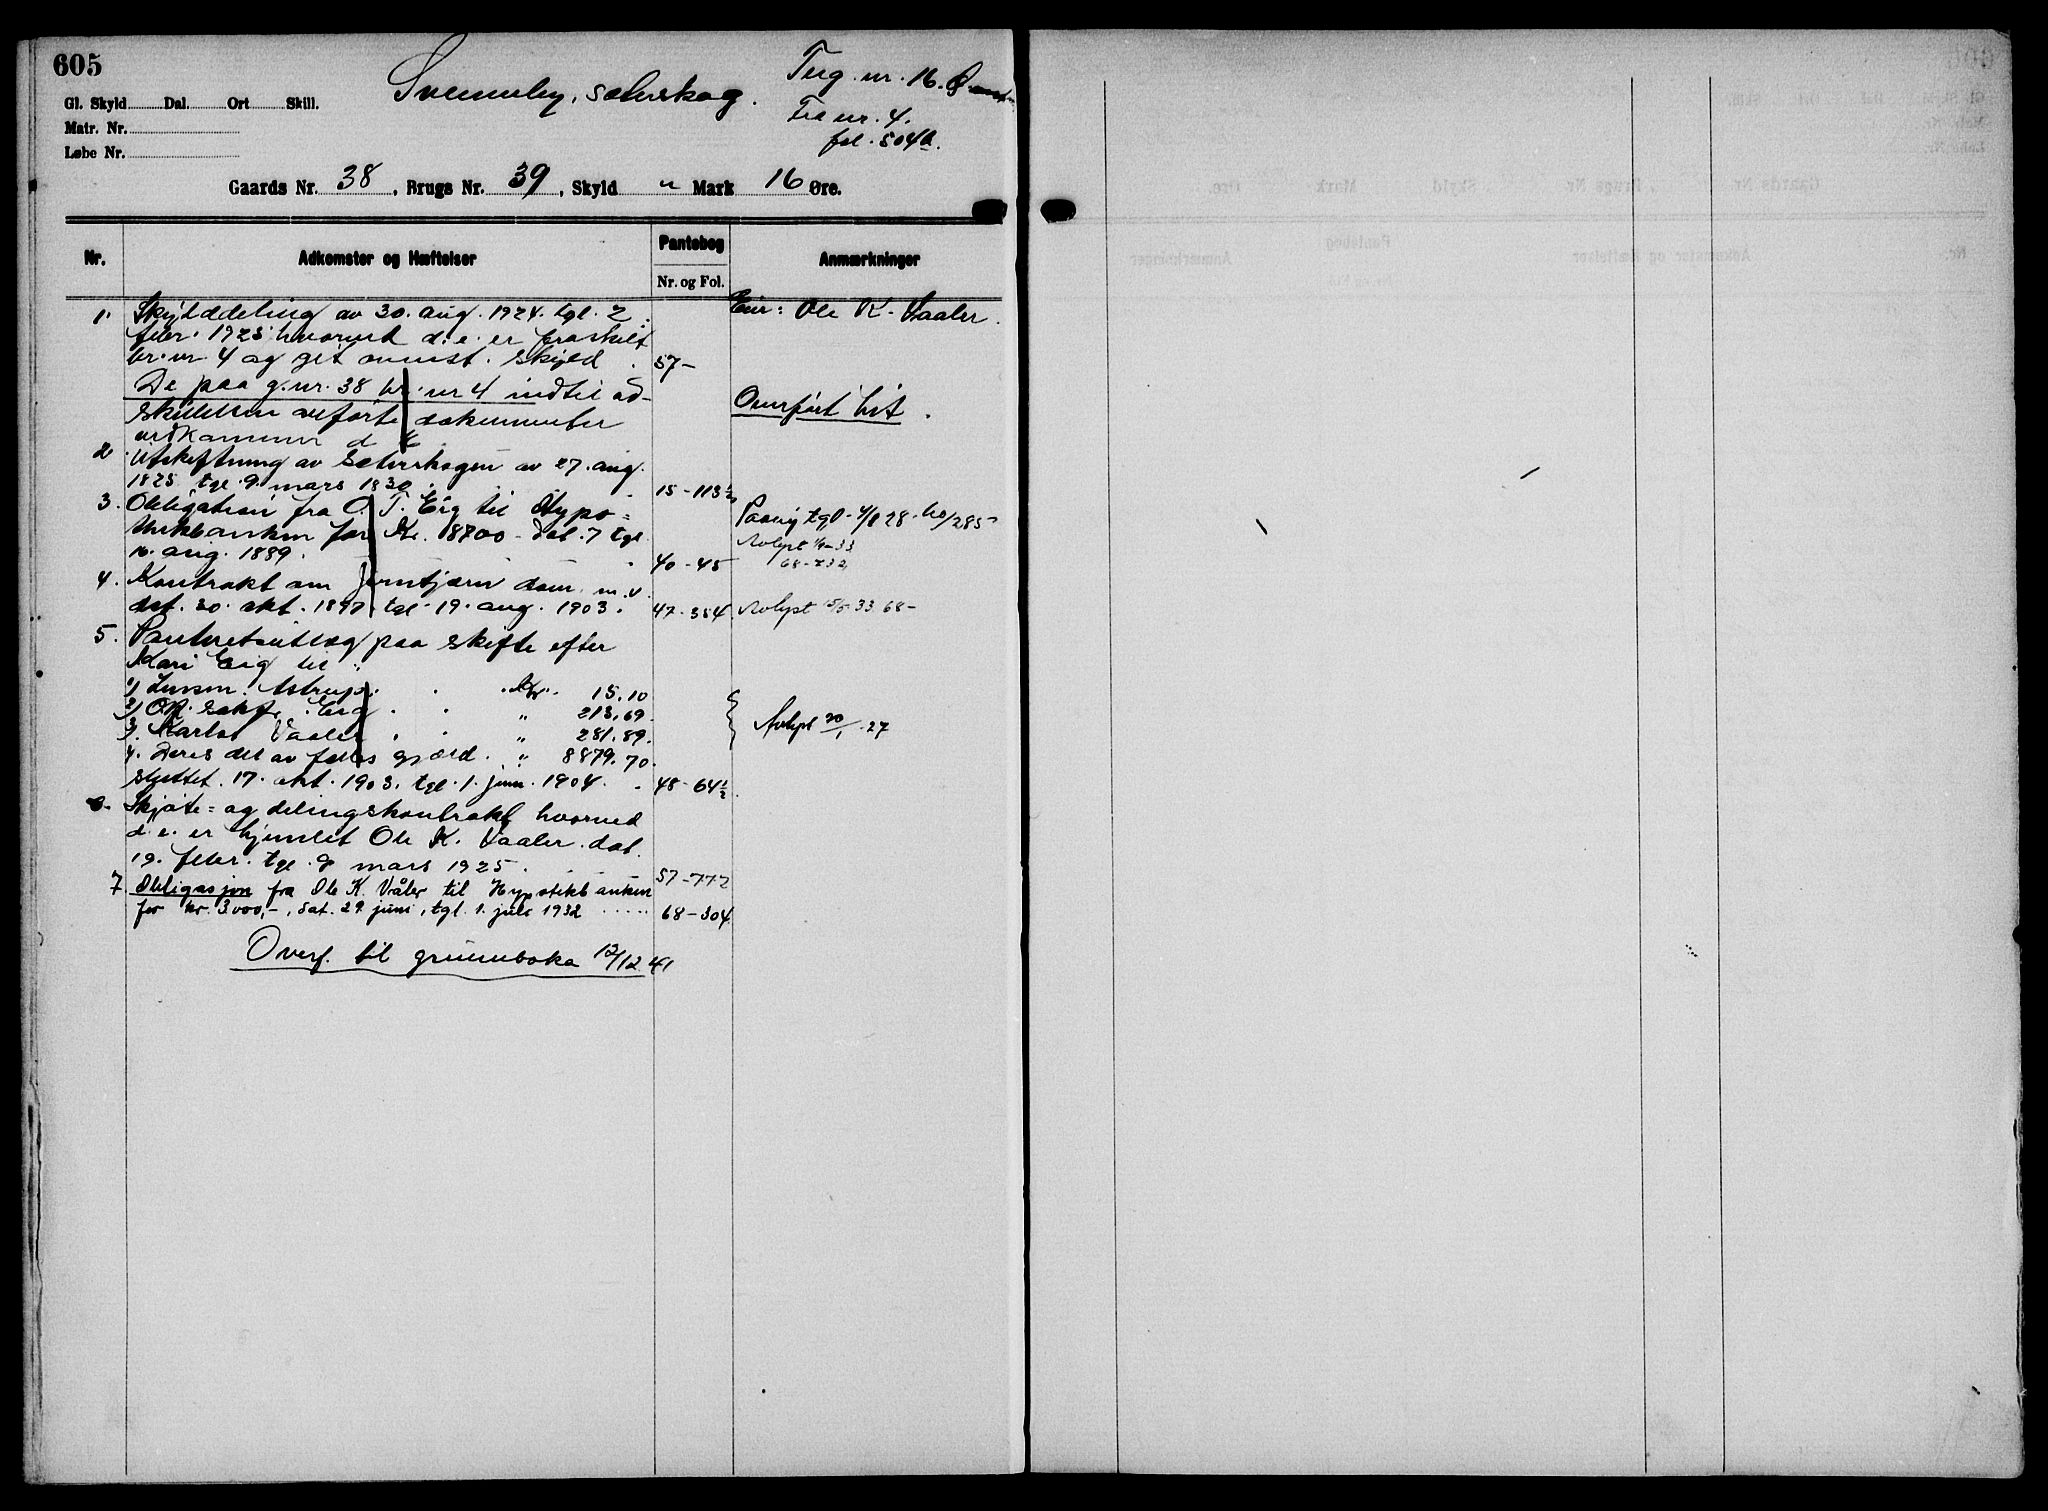 605
Svenneby, sæterskog.
Ting. nr. 16.
Fra nr. 4.
fol. 504a.
Gl. Skyld Dal. Ort Skill.
Matr. Nr.
Løbe Nr.
Gaards Nr. 38, Brugs Nr. 39, Skyld " Mark 16 Øre.
Nr. Adkomster og Hæftelser Pantebog Nr. og Fol. Anmærkninger
1. Skylddeling av 30. aug. 1924. tgl. 2. Eier: Ole K. Vaaler.
febr. 1925 hvorved d. e. er fraskilt
br. nr. 4 og git anmst. skyld. 57-
De paa g. nr. 38 br. nr 4 indtil ad-
skillelsen anførte dokumenter Overført hit.
vedkommer d. e.
2. Utskiftning av Sæterskogen av 27. aug.
1825 tgl. 9. mars 1830. 15-113½
3. Obligation fra O. T. Eig til Hypo=
thekbanken for Kr. 8700- dat. 7 tgl.
16. aug. 1889. 40-45
Avlyst 1/9-33
68-732
4. Kontrakt om Jerntjern dam m. v.
dat. 30. okt. 1897. tgl. 19. aug. 1903. 47-384 Avlyst 15/5 33 68-
5. Panteretsutlæg paa skifte efter
Kari Eig til:
1) Lensm. Astrup. Kr. 15.10
2) Eig " 213.69.
3. Karl Vaaler " 281.89.
4. Deres del av fælles gjæld. " 8879.70.
Avlyst 20/1-27
sluttet. 17. okt. 1903. tgl. 1. juni. 1904. 48-64½
6. Skjøte= og delingskontrakt hvorved
d. e. er hjemlet Ole K. Vaaler. dat.
19. febr. tgl. 9 mars 1925. 57-772
7. Obligasjon fra Ole K. Våler til Hypotekbanken
for kr. 3000,-, dat. 29. juni, tgl. 1. juli 1932 ..... 68-304
Overf. til grunnboka 12/12 41